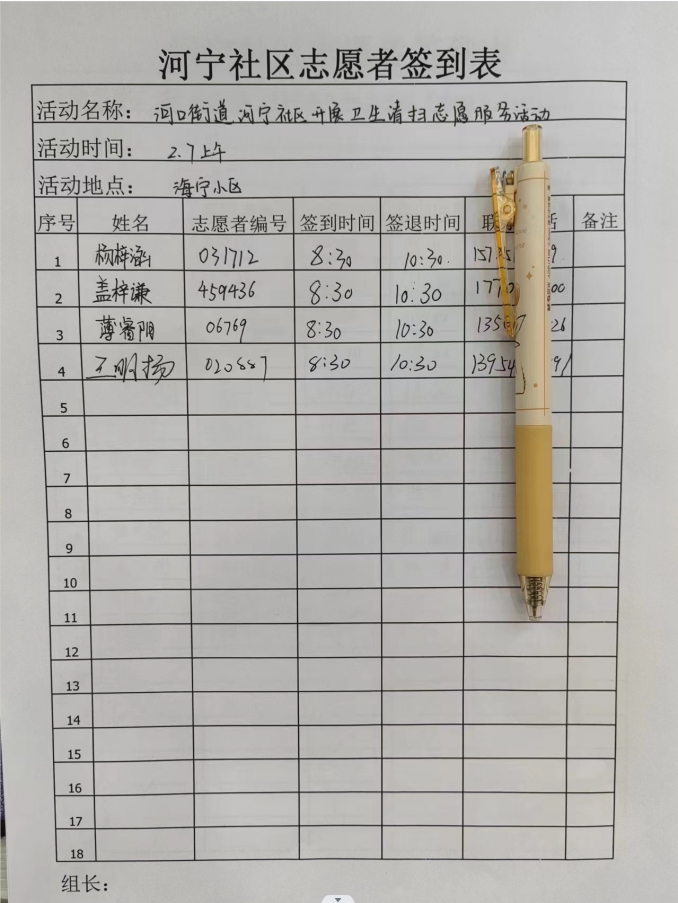 河宁社区志愿者签到表
活动名称： 河口街道河宁社区开展卫生清扫志愿服务活动
活动时间： 2.7上午
活动地点： 海宁小区
序号 姓名 志愿者编号 签到时间 签退时间 联 话 备注
1 杨梓涵 031712 8:30 10:30
2 盖梓谦 459436 8:30 10:30
3 薄睿阴 06769 8:30 10:30
4 王明扬 020887 8:30 10:30
5
6
7
8
9
10
11
12
13
14
15
16
17
18
组长：